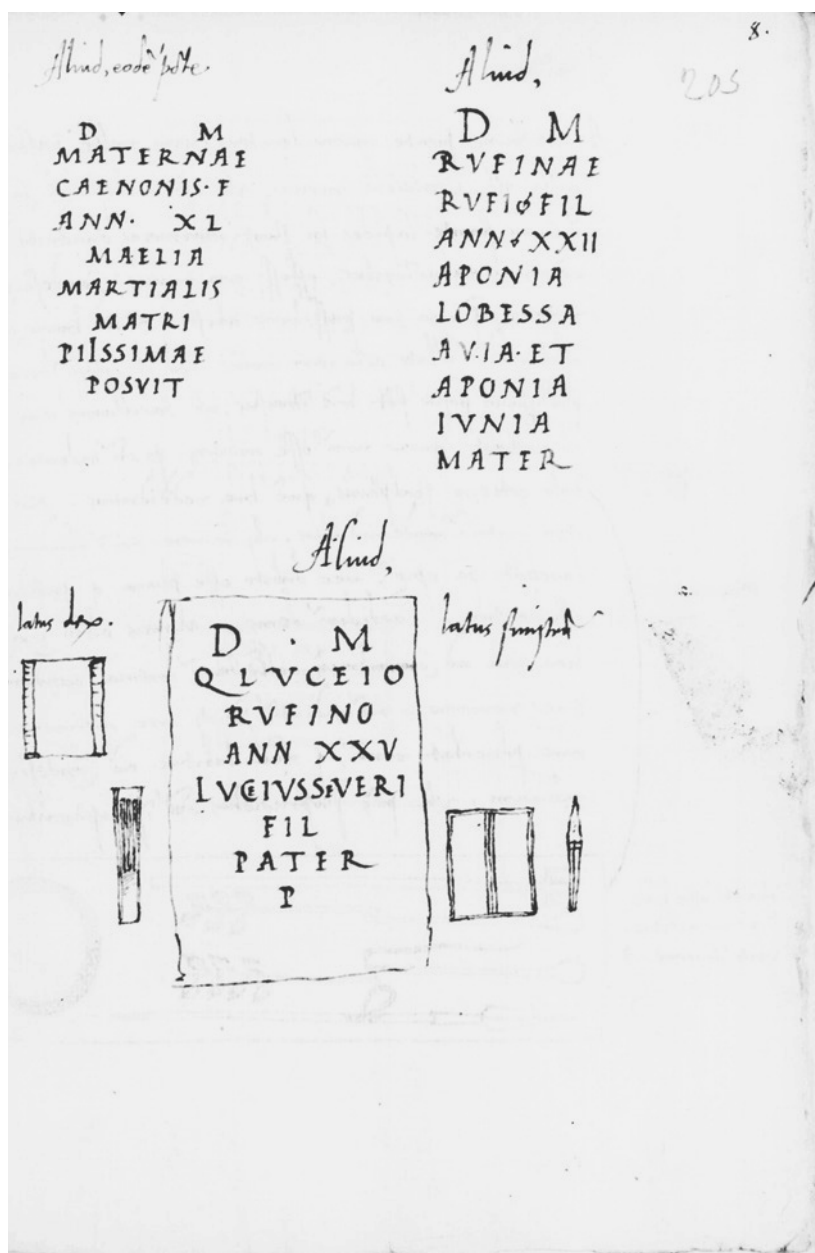 8.
205
Aliud, eodē pōte.
D M
MATERNAE
CAENONIS·F
ANN· XL
MAELIA
MARTIALIS
MATRI
PIISSIMAE
POSVIT
Aliud,
D M
RVFINAE
RVFI FIL
ANN XXII
APONIA
LOBESSA
AVIA·ET
APONIA
IVNIA
MATER
Aliud,
latus dex.
D · M
QLVCEIO
RVFINO
ANN XXV
LVCEIVSSEVERI
FIL
PATER
P
latus sinistrū